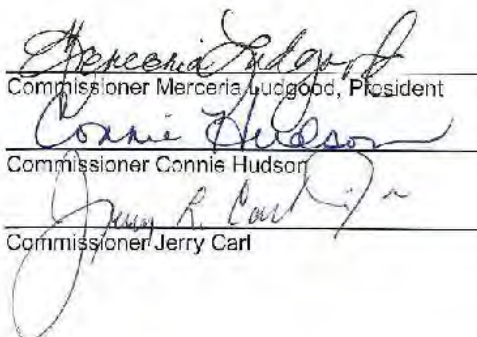 Merceria Ludgood
Commissioner Merceria Ludgood, President
Connie Hudson
Commissioner Connie Hudson
Jerry L. Carl Jr
Commissioner Jerry Carl